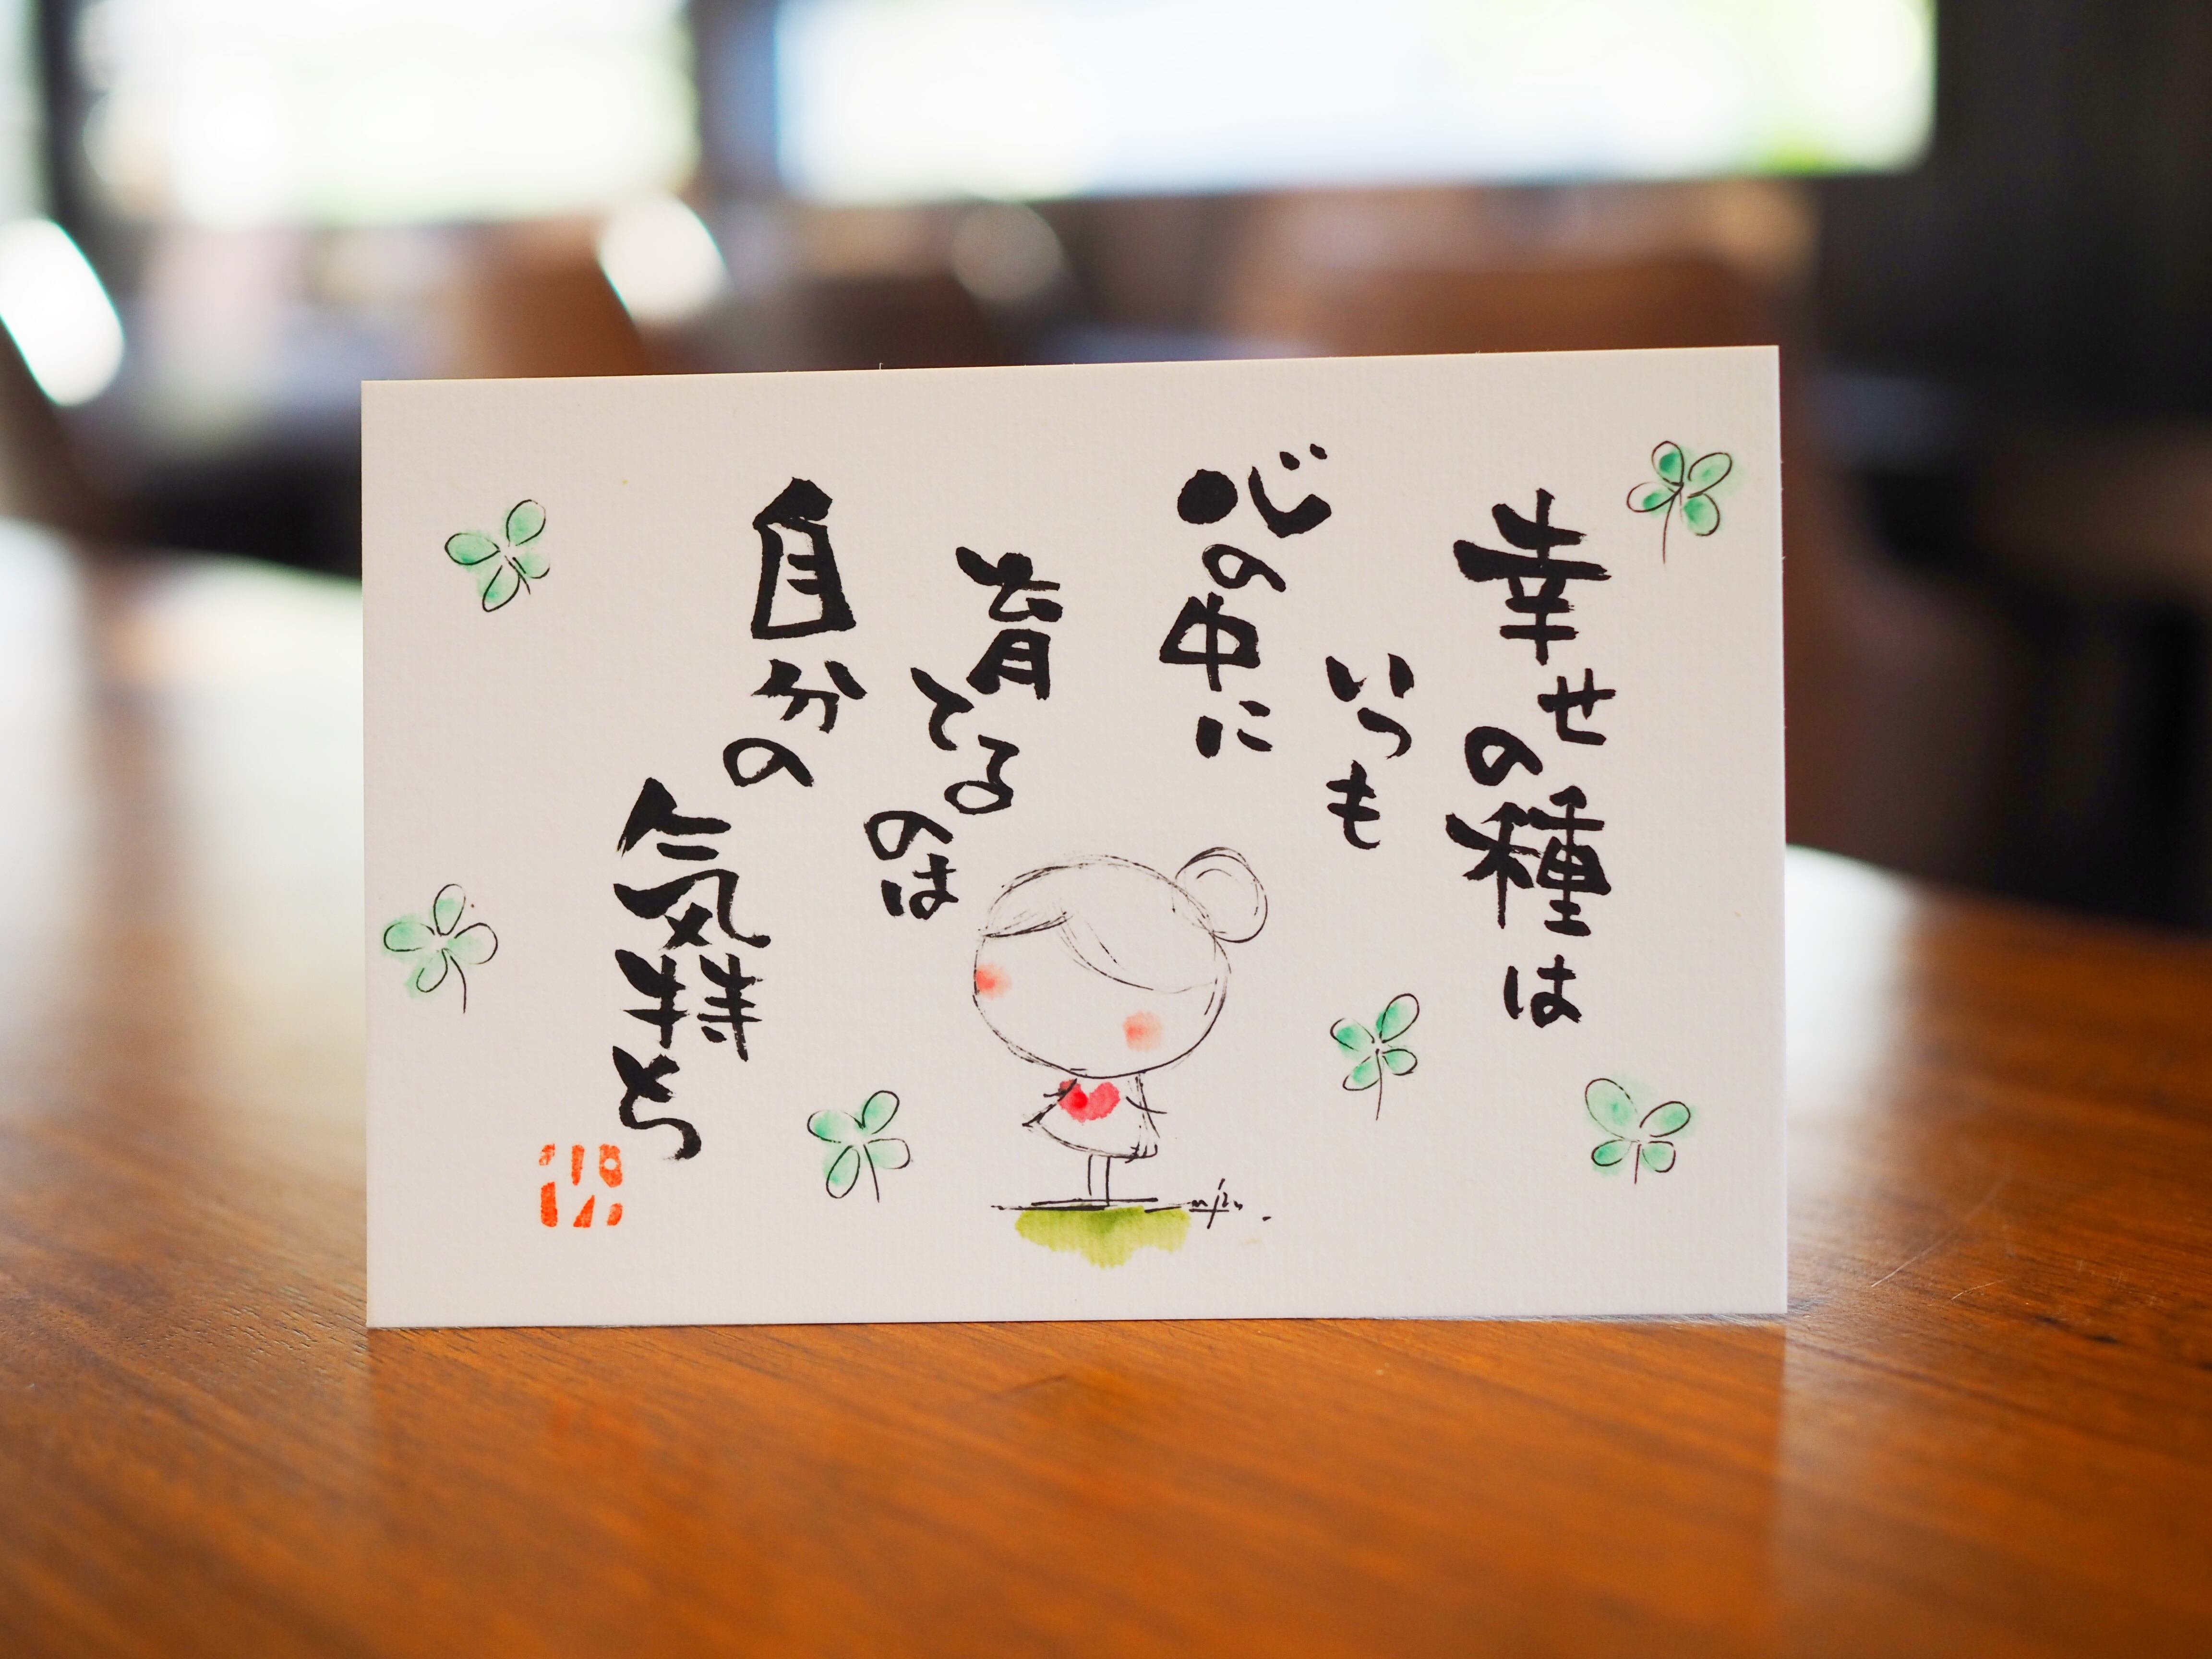 幸せの種は
いつも
心の中に
育てるのは
自分の
気持ち